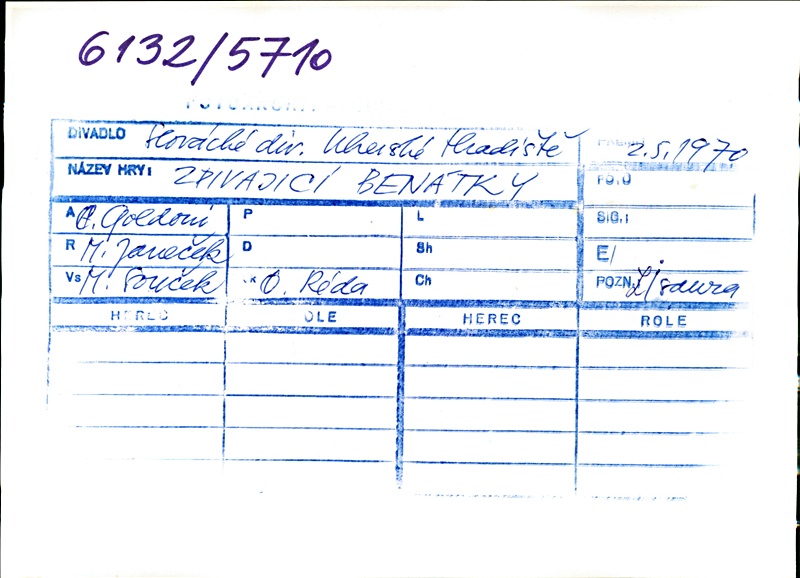 6132/5710
DIVADLO Slovácké div. Uherské Hradiště 2.5.1970
NÁZEV HRY: ZPIVAJICÍ BENÁTKY FOTO
A C. Goldoni P L SIG.:
R M. Janeček D Sh E/
Vs M. Souček O. Réda Ch POZN.
HEREC ROLE HEREC ROLE